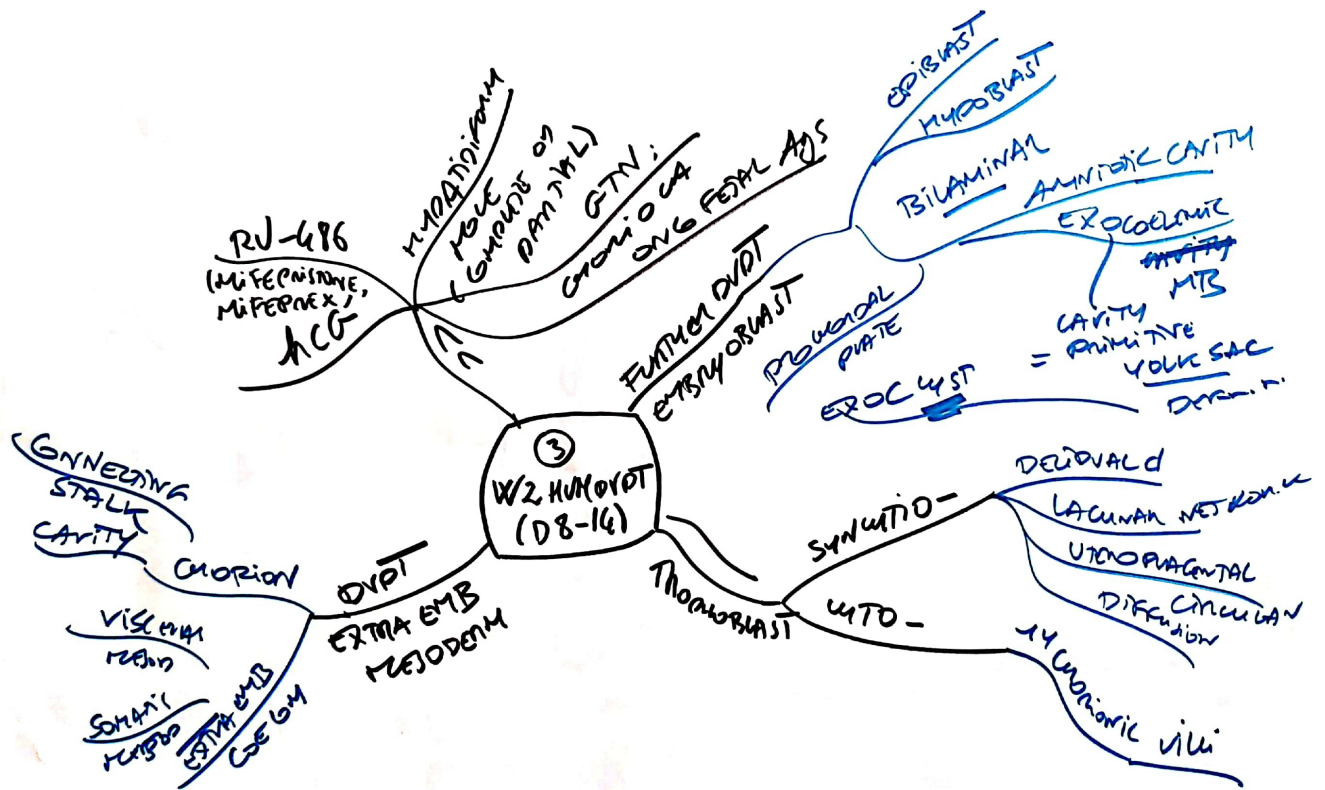 3
W2 HUM DVPT
(D8-14)
RU-486
(MIFEPRISTONE,
MIFEPREX)
hCG
HYDATIDIFORM
MOLE
(COMPLETE OR
PARTIAL)
GTN:
CHORIOCA
ONCO FETAL Ags
FURTHER DVPT
EMBRYOBLAST
EPIBLAST
HYPOBLAST
BILAMINAR
AMNIOTIC CAVITY
EXOCOELOMIC
MB
CAVITY
= PRIMITIVE
YOLK SAC
PROCHORDAL
PLATE
EXOC CYST
TROPHOBLAST
SYNCYTIO-
DECIDUAL
LACUNAR NETWORK
UTEROPLACENTAL
CIRCULAR
DIFFUSION
CYTO-
1Y CHORIONIC villi
DVPT
EXTRA EMB
MESODERM
CHORION
CONNECTING
STALK
CAVITY
VISCERAL
MESOD
SOMATIC
EXTRA EMB
COELOM